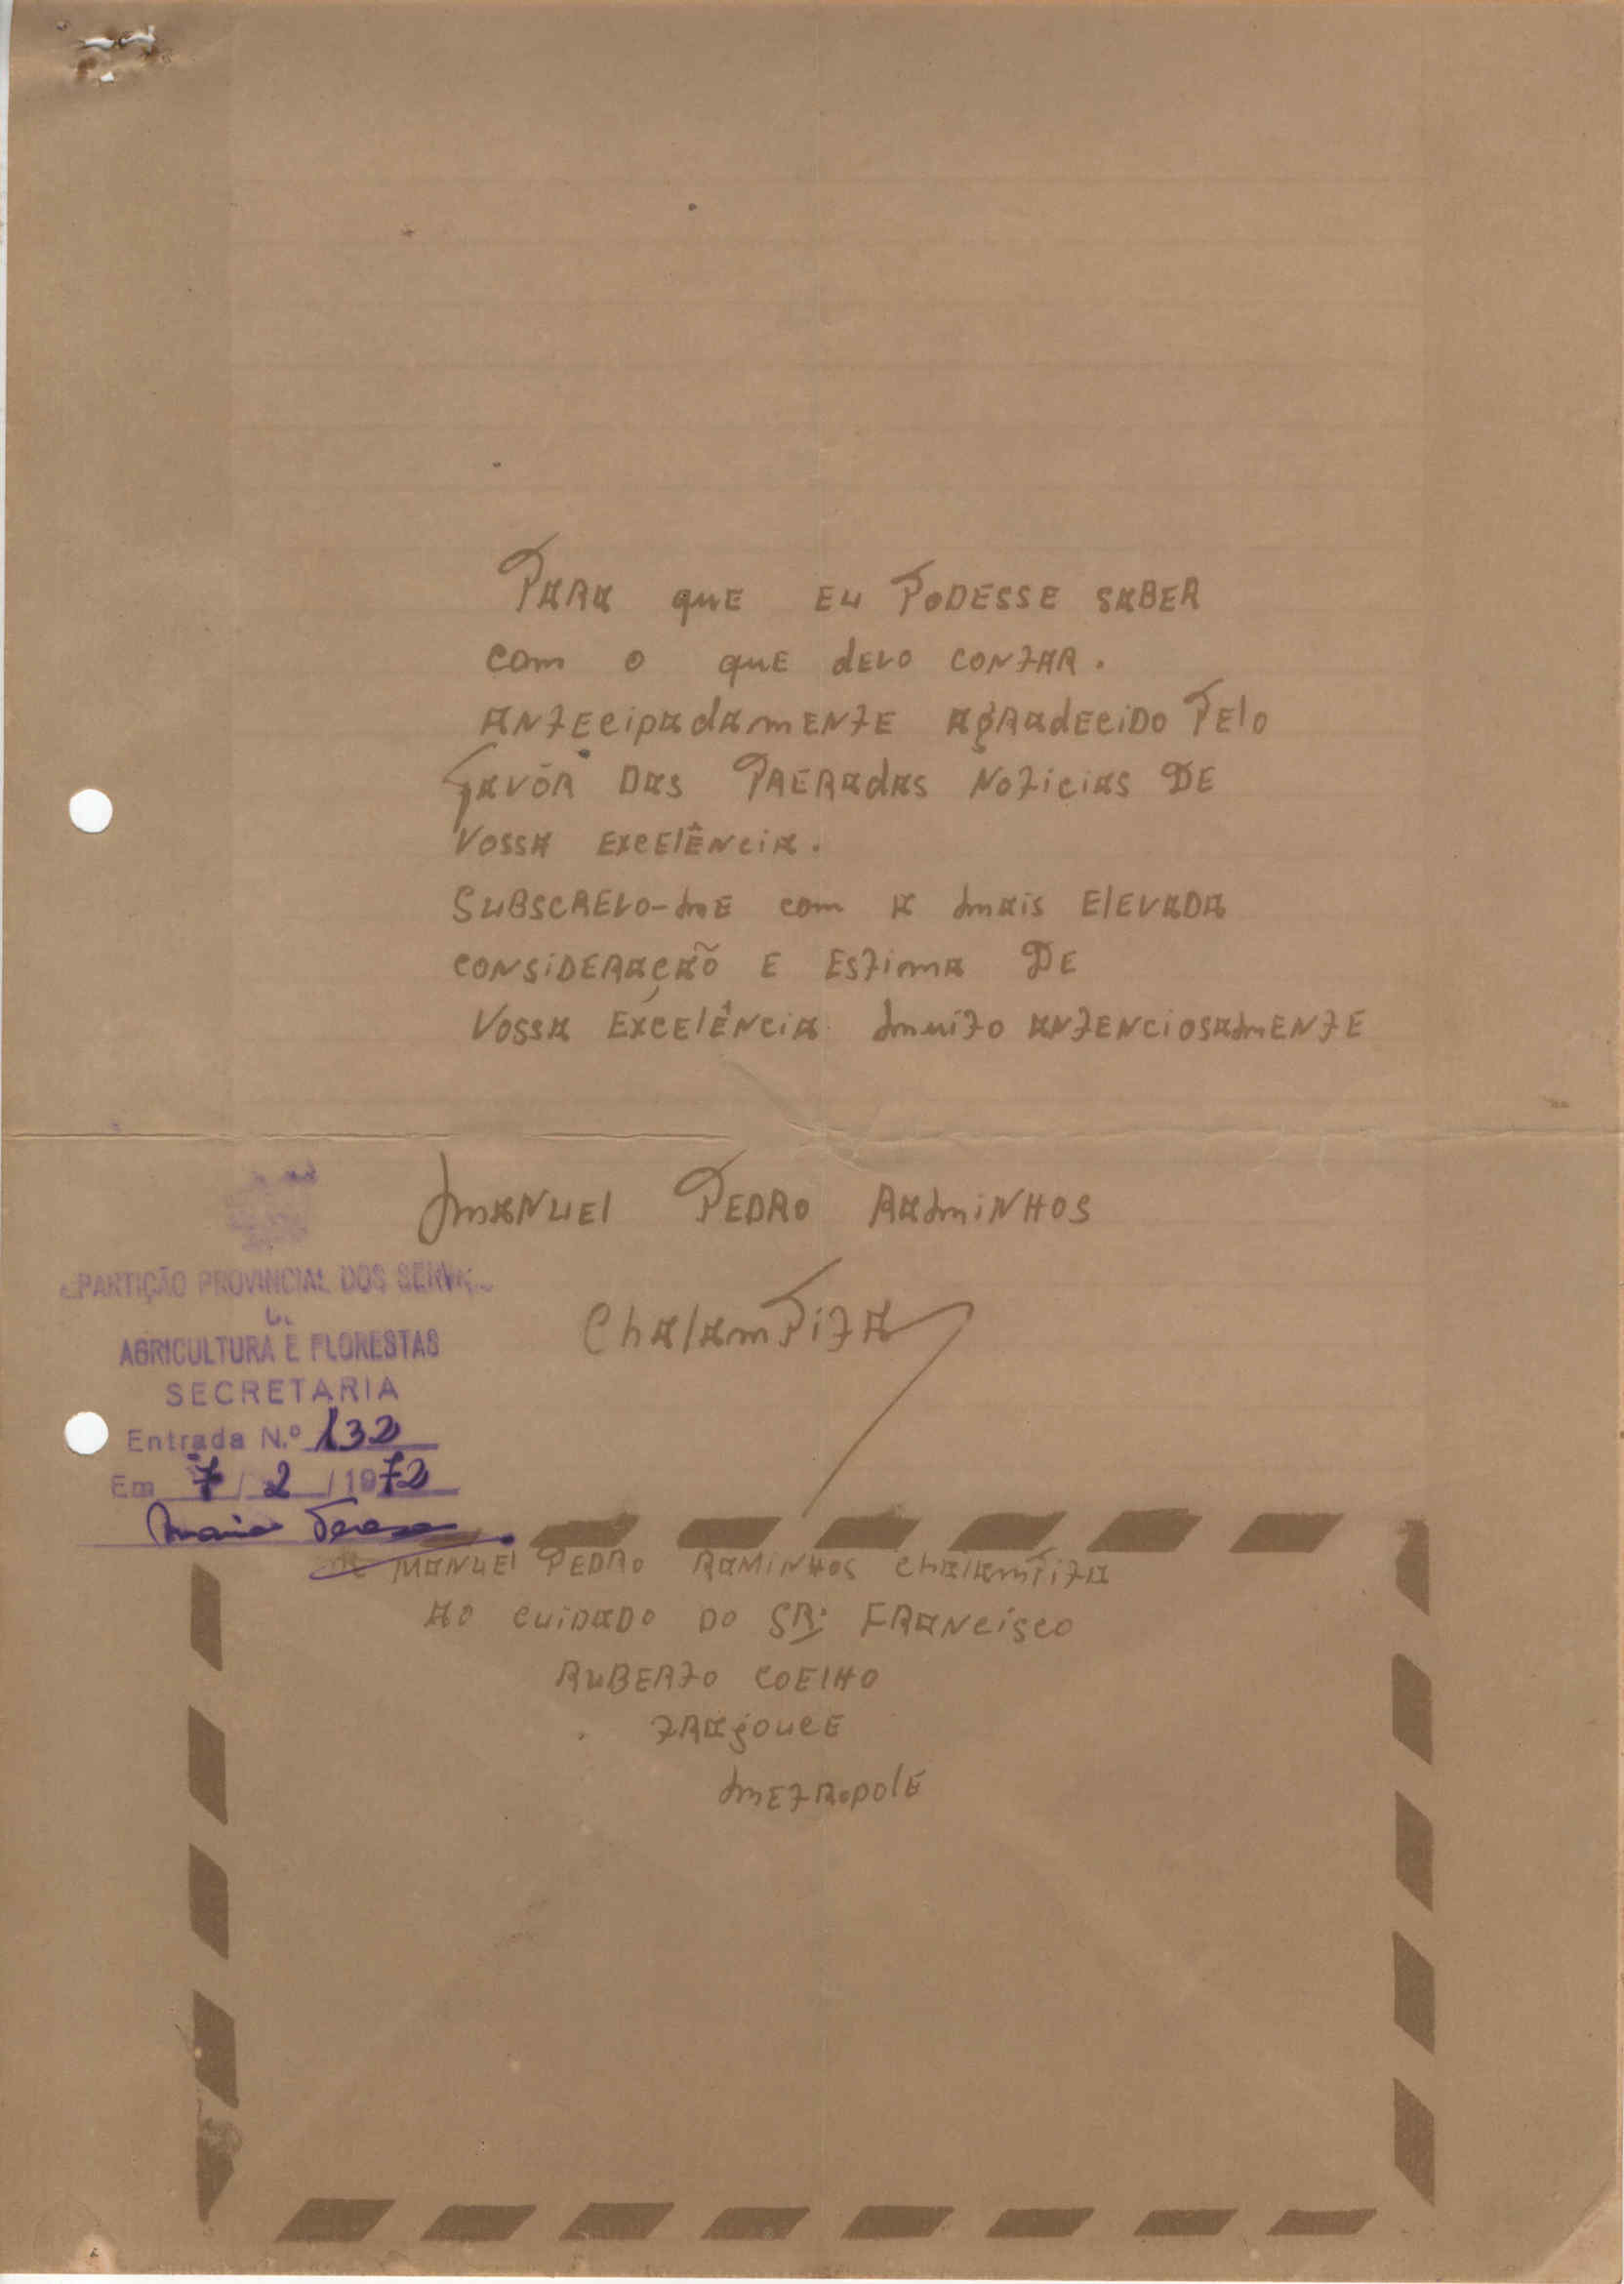 PARA quE EU PODESSE SABER
com o quE dEVO CONTAR.
ANTEcipadamENTE AgRAdEciDO PElo
FAVÔR DAS PRERAdAS NoTicias DE
VOSSA ExcElÊNciA.
SUBSCREVO-mE com A mais ElEVADA
CONSiDERAçÃO E ESTimA DE
VOSSA ExcElÊNciA muiTO ANTENCiOSAmENTE
mANUEl PEDRO RAmiNHOS
ChAlAmPiTA
EPARTIÇÃO PROVINCIAL DOS SERVI
DE
AGRICULTURA E FLORESTAS
SECRETARIA
Entrada N.º 132
Em 7 / 2 / 1972
Maria Teresa
MANUEl PEDRO RAMINHOS ChAlAmPiTA
AO cuiDADO DO SR: FRANciSco
RUBERTO COElHO
TRAgoucE
mETROPolE